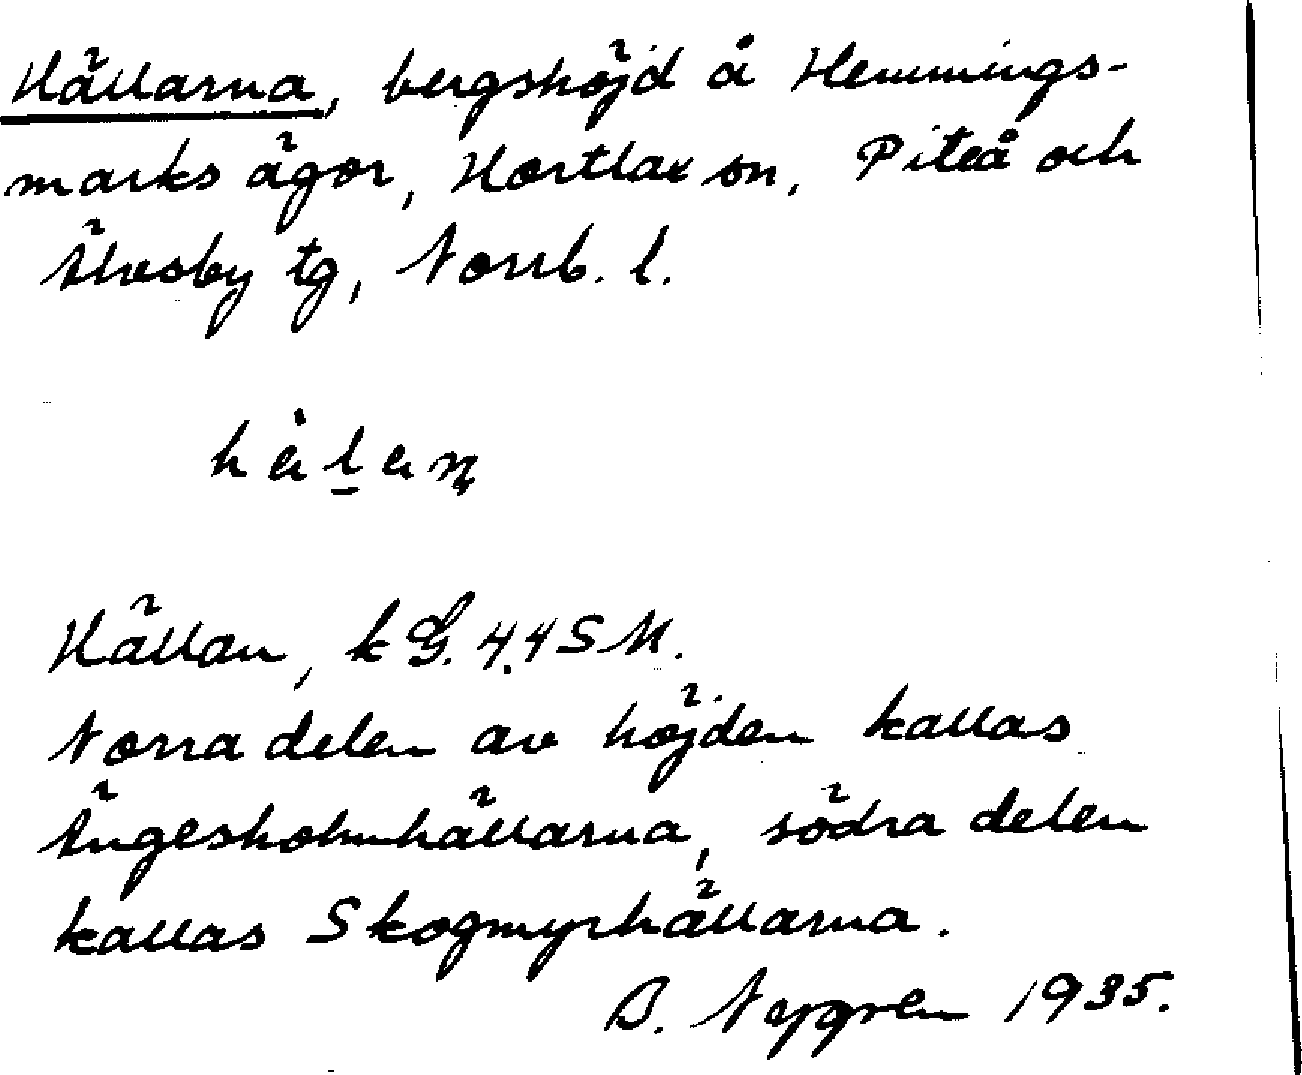 Hällarna, bergshöjd å Hemmings-
marks ägor, Hortlax sn, Piteå och
Älvsby tg, Norrb. l.
Hällan, k G. 44 SM.
Norra delen av höjden kallas
Ängesholmhällarna, södra delen
kallas Skogmyrhällarna.
B. Nygren 1935.